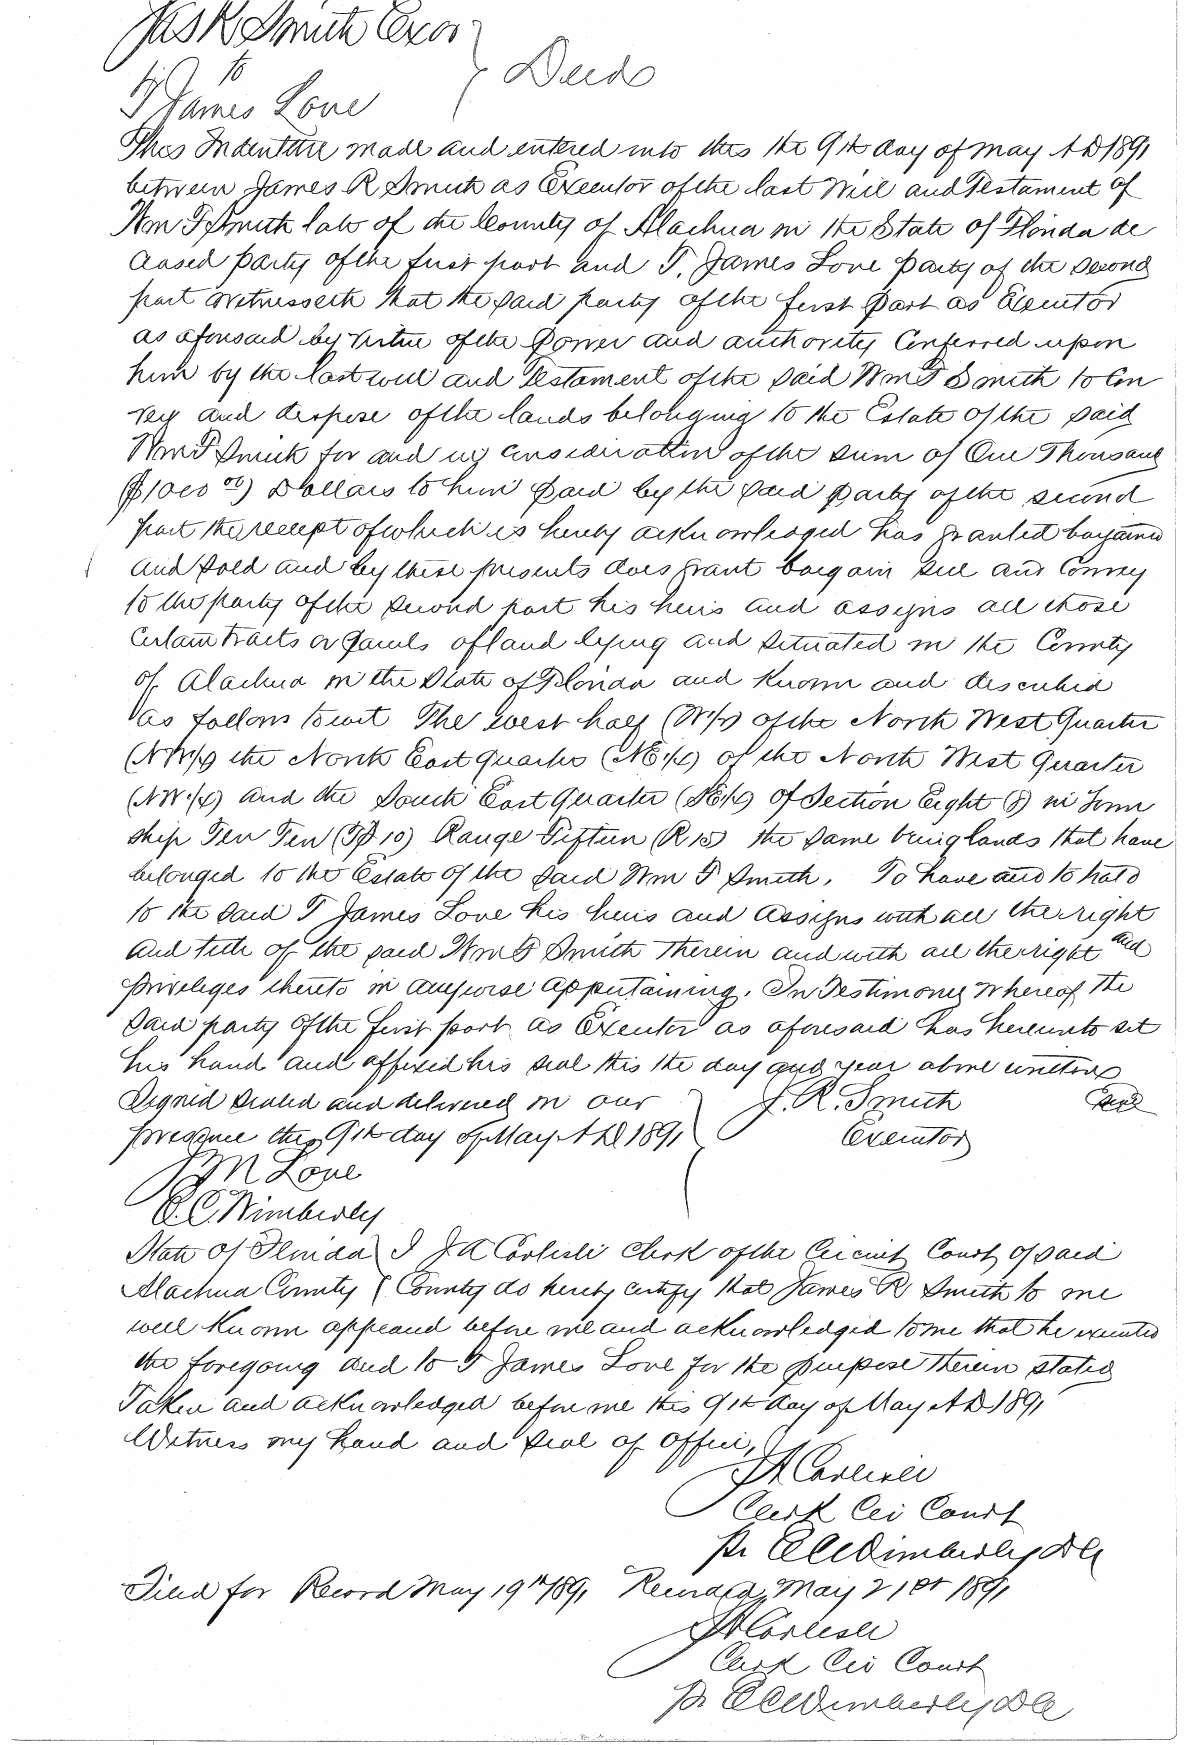 Jas R Smith Exor
to } Deed
T James Love
This Indenture made and entered into this the 9th day of May A D 1891
between James R Smith as Executor of the last Will and Testament of
Wm F Smith late of the County of Alachua in the State of Florida de
ceased party of the first part and T. James Love party of the second
part witnesseth that the said party of the first part as Executor
as aforesaid by virtue of the power and authority Conferred upon
him by the last will and Testament of the said Wm F Smith to Con
vey and dispose of the lands belonging to the Estate of the said
Wm F Smith for and in consideration of the sum of One Thousand
($1000 00) Dollars to him paid by the said party of the second
part the receipt of which is hereby acknowledged has granted bargained
and sold and by these presents does grant bargain sell and Convey
to the party of the second part his heirs and assigns all those
certain tracts or parcels of land lying and situated in the County
of Alachua in the State of Florida and known and described
as follows towit The west half (W1/2) of the North West Quarter
(NW1/4) the North East Quarter (NE1/4) of the North West Quarter
(NW1/4) and the South East Quarter (SE1/4) of Section Eight (8) in Town
ship Ten Ten (Tp 10) Range Fifteen (R 15) the same being lands that have
belonged to the Estate of the said Wm F Smith. To have and to hold
to the said T James Love his heirs and assigns with all the right
and title of the said Wm F Smith therein and with all the right and
privileges thereto in anywise appertaining. In Testimony Whereof the
said party of the first part as Executor as aforesaid has hereunto set
his hand and affixed his seal this the day and year above written
Signed sealed and delivered in our } J. R. Smith Seal
presence this 9th day of May A D 1891 Executor
J M Love
E. C. Wimberly
State of Florida } I J A Carlisle Clerk of the Circuit Court of said
Alachua County } County do hereby certify that James R Smith to me
well known appeared before me and acknowledged to me that he executed
the foregoing and to T James Love for the purpose therein stated
Taken and acknowledged before me this 9th day of May A D 1891
Witness my hand and seal of office,
J A Carlisle
Clerk Cir Court
Pr E C Wimberly D C
Filed for Record May 19th 1891 Recorded May 21st 1891
J A Carlisle
Clerk Cir Court
pr E C Wimberly D C